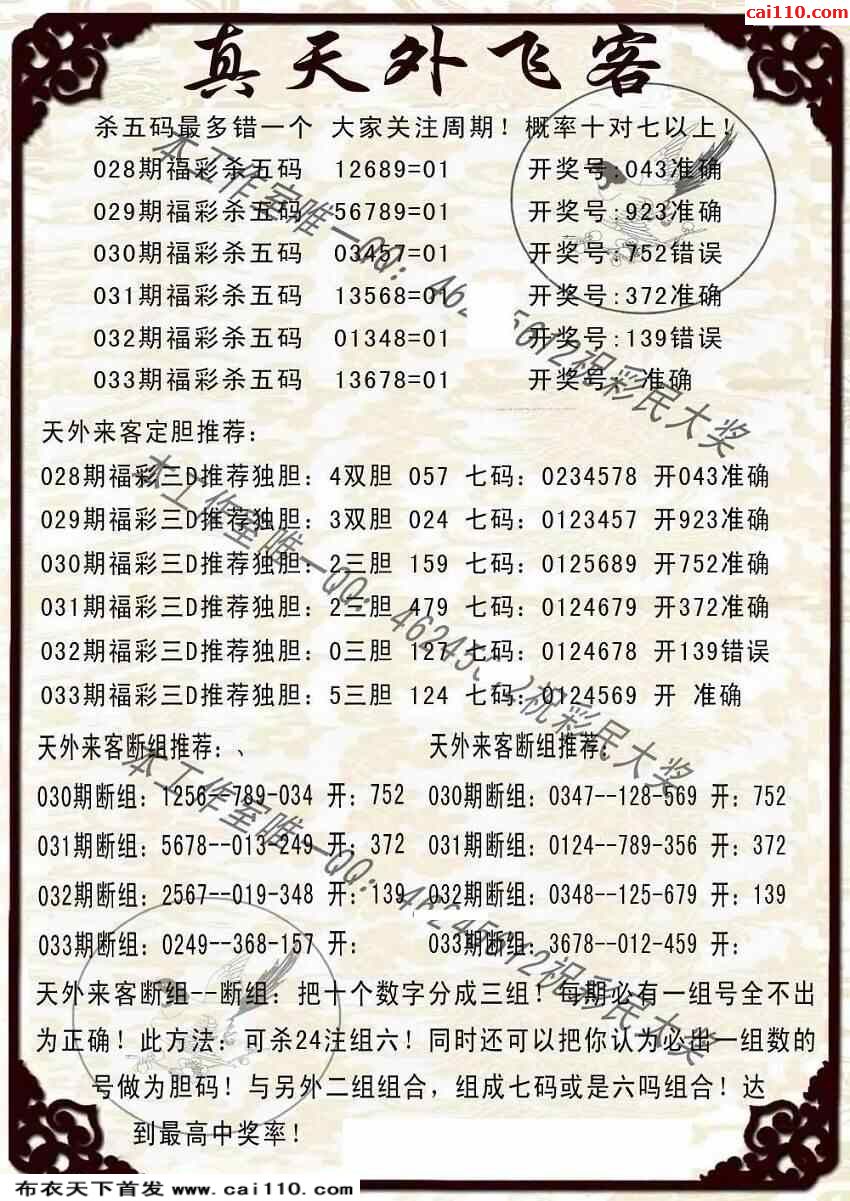 cai110.com
真天外飞客
杀五码最多错一个 大家关注周期！概率十对七以上！
028期福彩杀五码 12689=01 开奖号:043准确
029期福彩杀五码 56789=01 开奖号:923准确
030期福彩杀五码 03457=01 开奖号:752错误
031期福彩杀五码 13568=01 开奖号:372准确
032期福彩杀五码 01348=01 开奖号:139错误
033期福彩杀五码 13678=01 开奖号: 准确
天外来客定胆推荐：
028期福彩三D推荐独胆：4双胆 057 七码：0234578 开043准确
029期福彩三D推荐独胆：3双胆 024 七码：0123457 开923准确
030期福彩三D推荐独胆：2三胆 159 七码：0125689 开752准确
031期福彩三D推荐独胆：2三胆 479 七码：0124679 开372准确
032期福彩三D推荐独胆：0三胆 127 七码：0124678 开139错误
033期福彩三D推荐独胆：5三胆 124 七码：0124569 开 准确
天外来客断组推荐：、 天外来客断组推荐：
030期断组：1256--789-034 开：752 030期断组：0347--128-569 开：752
031期断组：5678--013-249 开：372 031期断组：0124--789-356 开：372
032期断组：2567--019-348 开：139 032期断组：0348--125-679 开：139
033期断组：0249--368-157 开： 033期断组：3678--012-459 开：
天外来客断组--断组：把十个数字分成三组！每期必有一组号全不出
为正确！此方法：可杀24注组六！同时还可以把你认为必出一组数的
号做为胆码！与另外二组组合，组成七码或是六吗组合！达
到最高中奖率！
本工作室唯一QQ：46245612祝彩民大奖
本工作室唯一QQ：46245612祝彩民大奖
本工作室唯一QQ：46245612祝彩民大奖
布衣天下首发 www.cai110.com